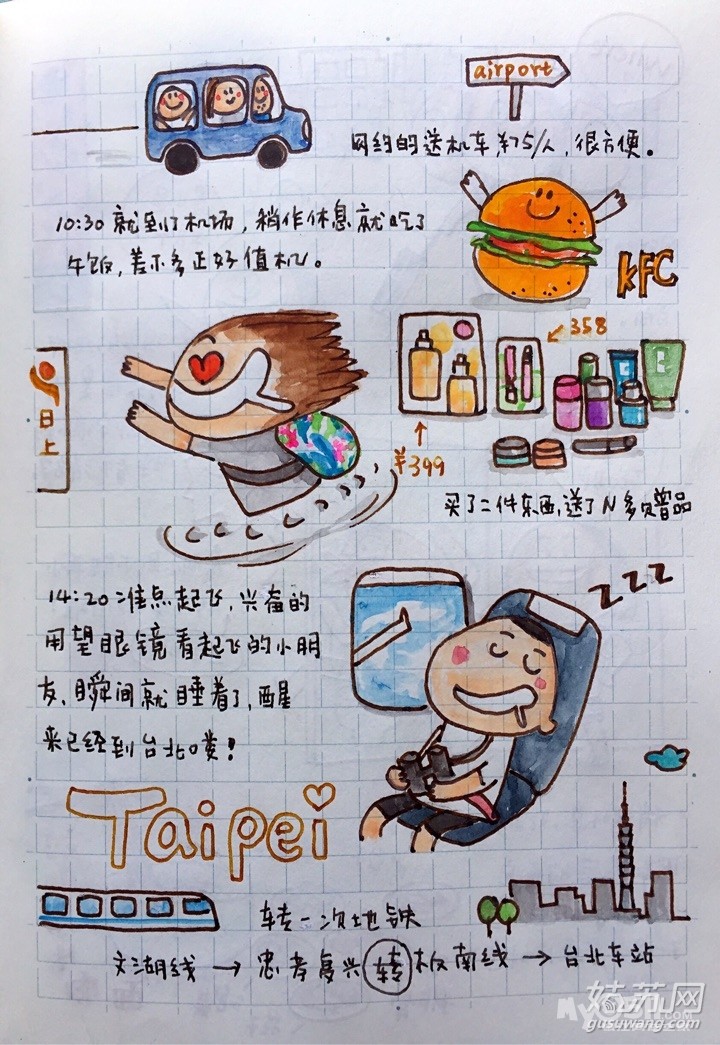 airport
网约的送机车¥75/人，很方便。
10:30 就到了机场，稍作休息就吃了
午饭，差不多正好值机。
KFC
358
日上
¥399
买了二件东西，送了N多赠品
zzz
14:20 准点起飞，兴奋的
用望眼镜看起飞的小朋
友，瞬间就睡着了，醒
来已经到台北喽！
Taipei
转一次地铁
文湖线 → 忠孝复兴 转 板南线 → 台北车站
姑苏网
gusuwang.com